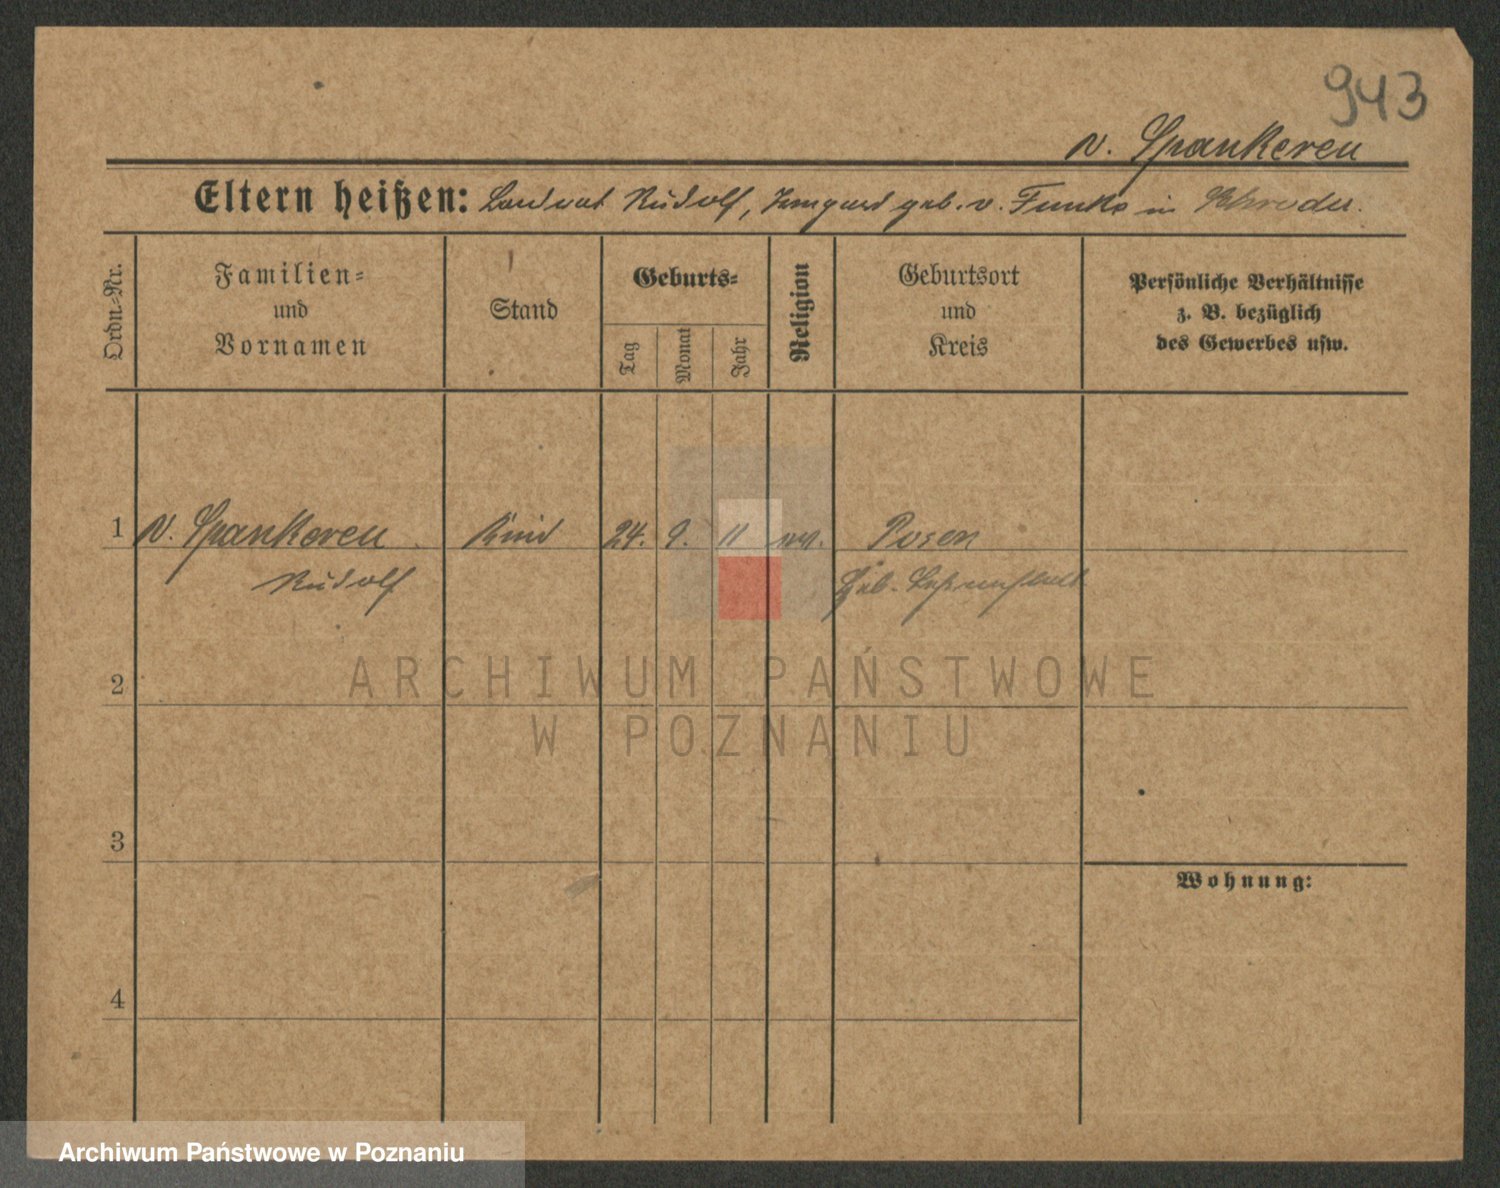 943
v. Spankeren
Eltern heißen: Landrat Rudolf, Irmgard geb. v. Funke in
Ordn.=Nr.
Familien=
und
Vornamen
Stand
Geburts=
Tag
Monat
Jahr
Religion
Geburtsort
und
Kreis
Persönliche Verhältnisse
z. B. bezüglich
des Gewerbes usw.
1 v. Spankeren Kind 24. 9. 11 ev. Posen
Rudolf
2
3
4
Wohnung:
ARCHIWUM PAŃSTWOWE
W POZNANIU
Archiwum Państwowe w Poznaniu